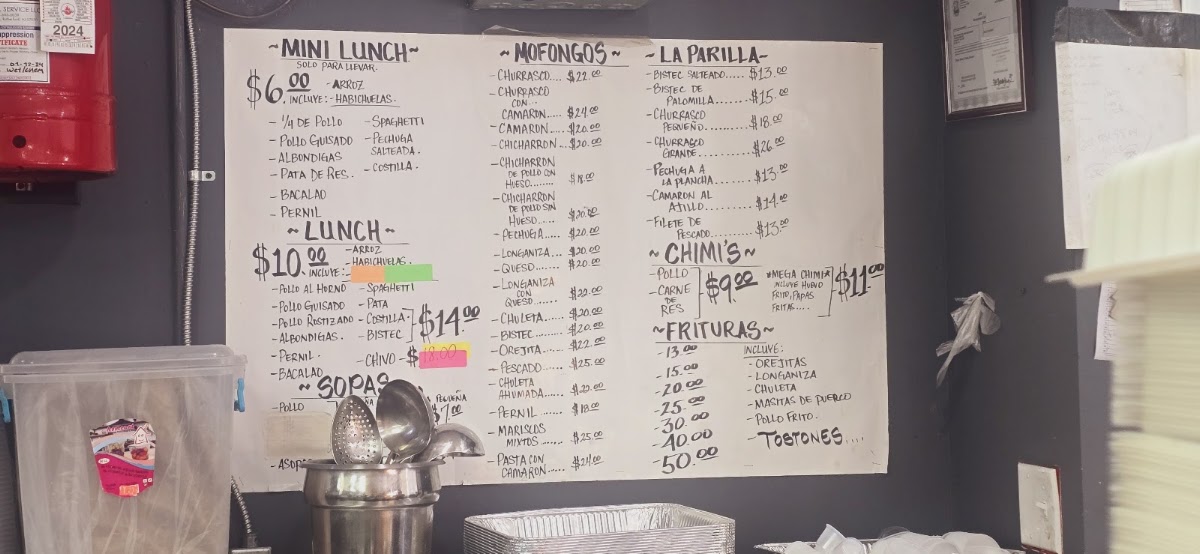 2024
~MINI LUNCH~
SOLO PARA LLEVAR.
$6.00
INCLUYE:
-ARROZ
-HABICHUELAS.
-1/4 DE POLLO
-POLLO GUISADO
-ALBONDIGAS
-PATA DE RES.
-BACALAO
-PERNIL
-SPAGHETTI
-PECHUGA
SALTEADA.
-COSTILLA.
~LUNCH~
$10.00
INCLUYE:-
-ARROZ
-HABICHUELAS.
-POLLO AL HORNO
-POLLO GUISADO
-POLLO ROSTIZADO
-ALBONDIGAS.
-PERNIL.
-BACALAO
-SPAGHETTI
-PATA
-COSTILLA
-BISTEC
$14.00
-CHIVO-$18.00
~SOPAS
-POLLO
PEQUEÑA
$7.00
~MOFONGOS~
-CHURRASCO.... $22.00
-CHURRASCO
CON...
CAMARON.... $24.00
-CAMARON.... $20.00
-CHICHARRON.... $20.00
-CHICHARRON
DE POLLO CON
HUESO........ $18.00
-CHICHARRON
DE POLLO SIN
HUESO..... $20.00
-PECHUGA..... $20.00
-LONGANIZA.... $20.00
-QUESO....... $20.00
-LONGANIZA
CON
QUESO........ $20.00
-CHULETA..... $20.00
-BISTEC....... $20.00
-OREJITA...... $22.00
-PESCADO...... $25.00
-CHULETA
AHUMADA..... $20.00
-PERNIL....... $18.00
-MARISCOS
MIXTOS...... $25.00
-PASTA CON
CAMARON..... $24.00
~LA PARILLA~
-BISTEC SALTEADO..... $13.00
-BISTEC DE
PALOMILLA....... $15.00
-CHURRASCO
PEQUEÑO......... $18.00
-CHURRASCO
GRANDE.......... $26.00
-PECHUGA A
LA PLANCHA...... $13.00
-CAMARON AL
AJILLO.......... $14.00
-FILETE DE
PESCADO......... $13.00
~CHIMI'S~
-POLLO
-CARNE
DE
RES
$9.00
*MEGA CHIMI*
INCLUYE HUEVO
FRITO, PAPAS
FRITAS....
$11.00
~FRITURAS~
-13.00
-15.00
-20.00
-25.00
-30.00
-40.00
-50.00
INCLUYE:
-OREJITAS
-LONGANIZA
-CHULETA
-MASITAS DE PUERCO
-POLLO FRITO.
-TOSTONES....